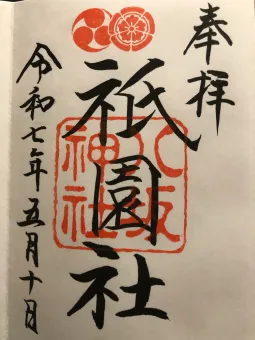 奉拝
祇園社
八坂神社
令和七年五月十日